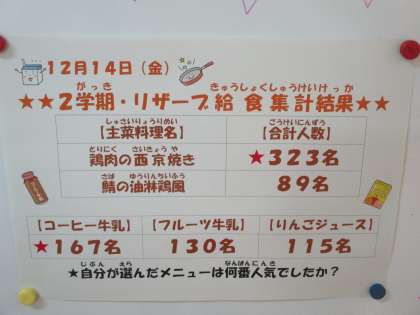 12月14日（金）
がっき きゅうしょくしゅうけいけっか
★★2学期・リザーブ給食集計結果★★
しゅさいりょうりめい ごうけいにんずう
【主菜料理名】 【合計人数】
とりにく さいきょう や
鶏肉の西京焼き ★323名
さば ゆうりんちいふう
鯖の油淋鶏風 89名
【コーヒー牛乳】 【フルーツ牛乳】 【りんごジュース】
★167名 130名 115名
じぶん えら なんばんにんき
★自分が選んだメニューは何番人気でしたか？